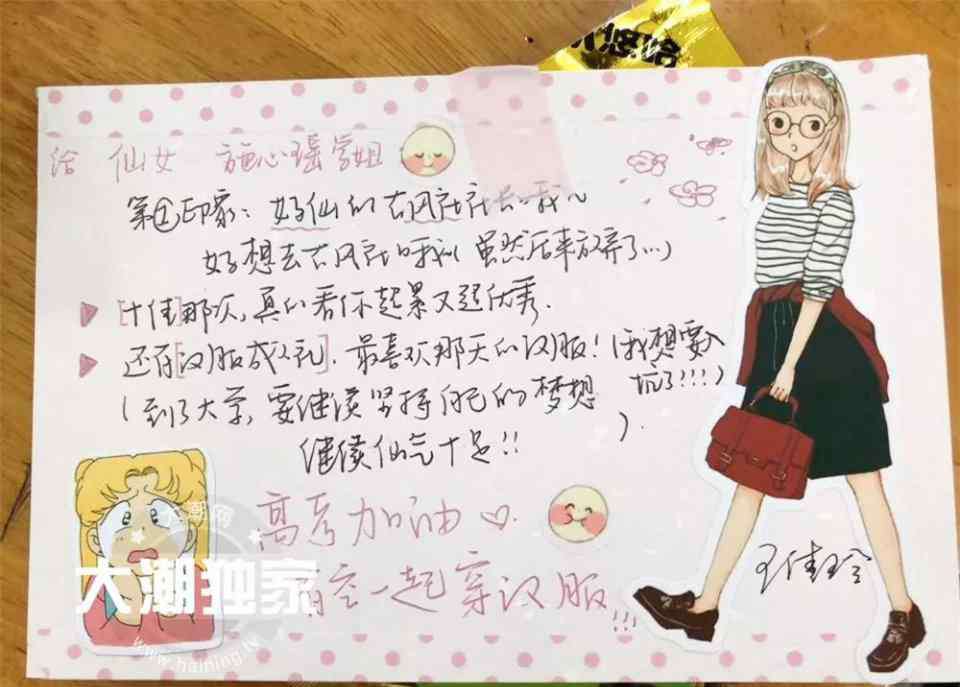 悠哈
给 仙女 施心瑶学姐
第①印象：好仙的古风社社长哦～
好想去古风社哦（虽然后来放弃了…）
[十佳]那次，真的看你起累又超优秀.
还有[汉服成人礼]. 最喜欢那天的汉服！（我想要入
坑了!!!）
（到了大学，要继续坚持自己的梦想
继续仙气十足!!）
高考加油♡.
有空一起穿汉服!!!
王佳玲
大潮网
大潮独家
www.haining.tv